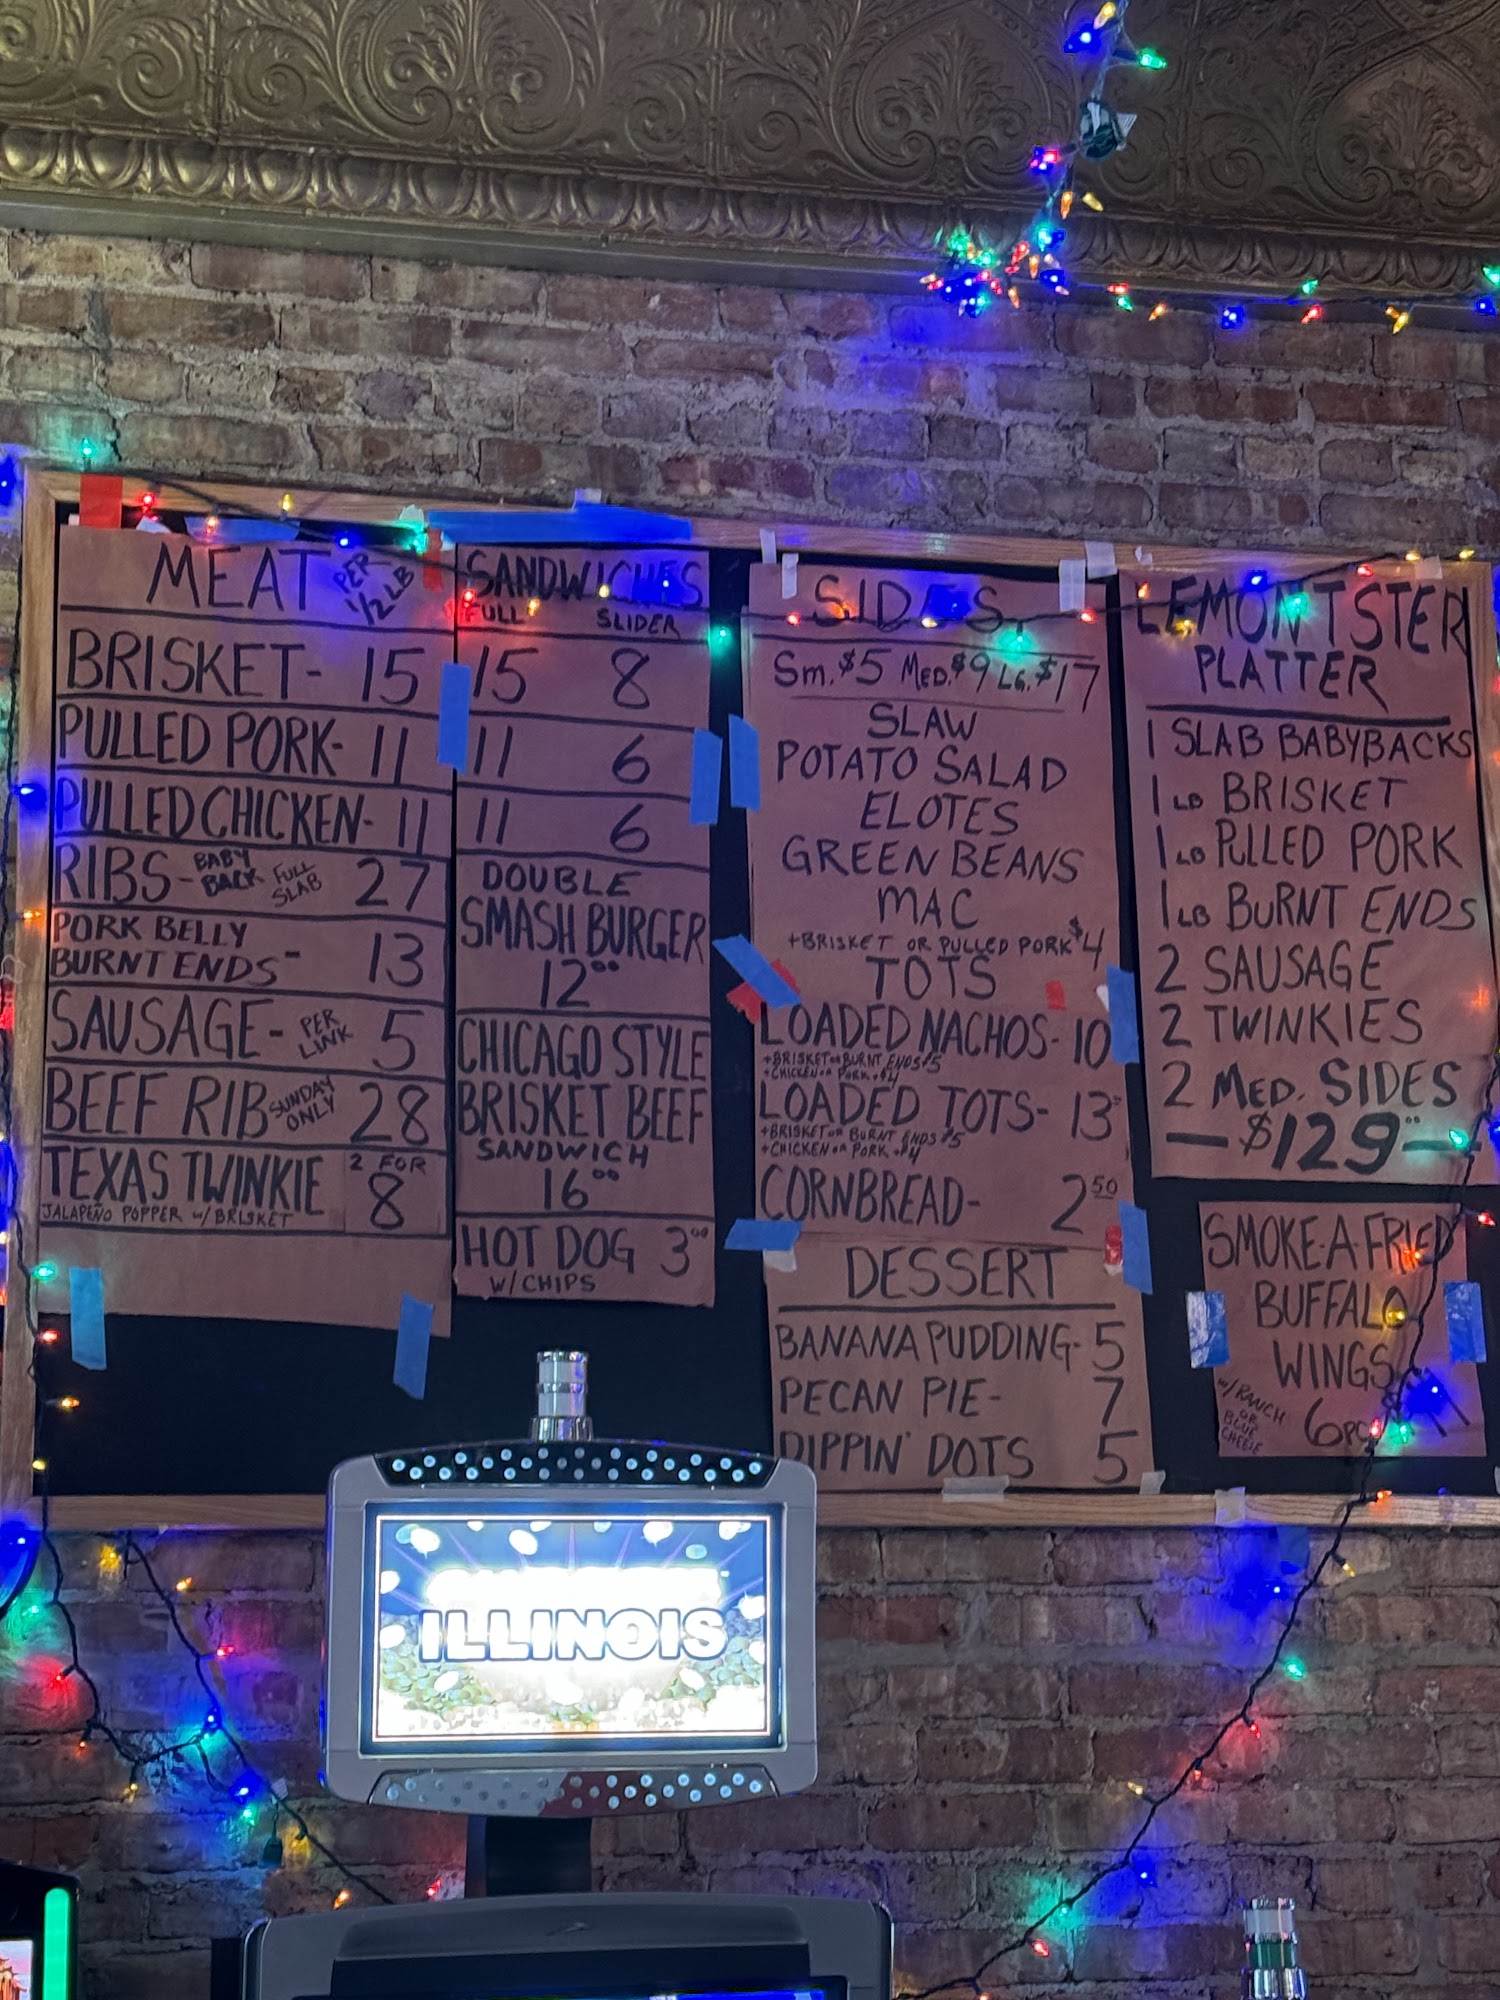 MEAT PER 1/2 LB
BRISKET- 15
PULLED PORK- 11
PULLED CHICKEN- 11
RIBS- BABY BACK FULL SLAB 27
PORK BELLY
BURNT ENDS- 13
SAUSAGE- PER LINK 5
BEEF RIB SUNDAY ONLY 28
TEXAS TWINKIE 2 FOR 8
JALAPEÑO POPPER W/ BRISKET
SANDWICHES
FULL SLIDER
15 8
11 6
11 6
DOUBLE
SMASH BURGER
12.00
CHICAGO STYLE
BRISKET BEEF
SANDWICH
16.00
HOT DOG 3.00
W/ CHIPS
SIDES
Sm. $5 MED. $9 LG. $17
SLAW
POTATO SALAD
ELOTES
GREEN BEANS
MAC
+BRISKET OR PULLED PORK $4
TOTS
LOADED NACHOS- 10
+BRISKET OR BURNT ENDS $5
+CHICKEN OR PORK +$4
LOADED TOTS- 13
+BRISKET OR BURNT ENDS $5
+CHICKEN OR PORK +$4
CORNBREAD- 2.50
DESSERT
BANANA PUDDING- 5
PECAN PIE- 7
DIPPIN' DOTS 5
LEMONTSTER
PLATTER
1 SLAB BABYBACKS
1 LB BRISKET
1 LB PULLED PORK
1 LB BURNT ENDS
2 SAUSAGE
2 TWINKIES
2 MED. SIDES
- $129.00 -
SMOKE-A-FRIED
BUFFALO
WINGS
W/ RANCH OR BLUE CHEESE
6PC
ILLINOIS